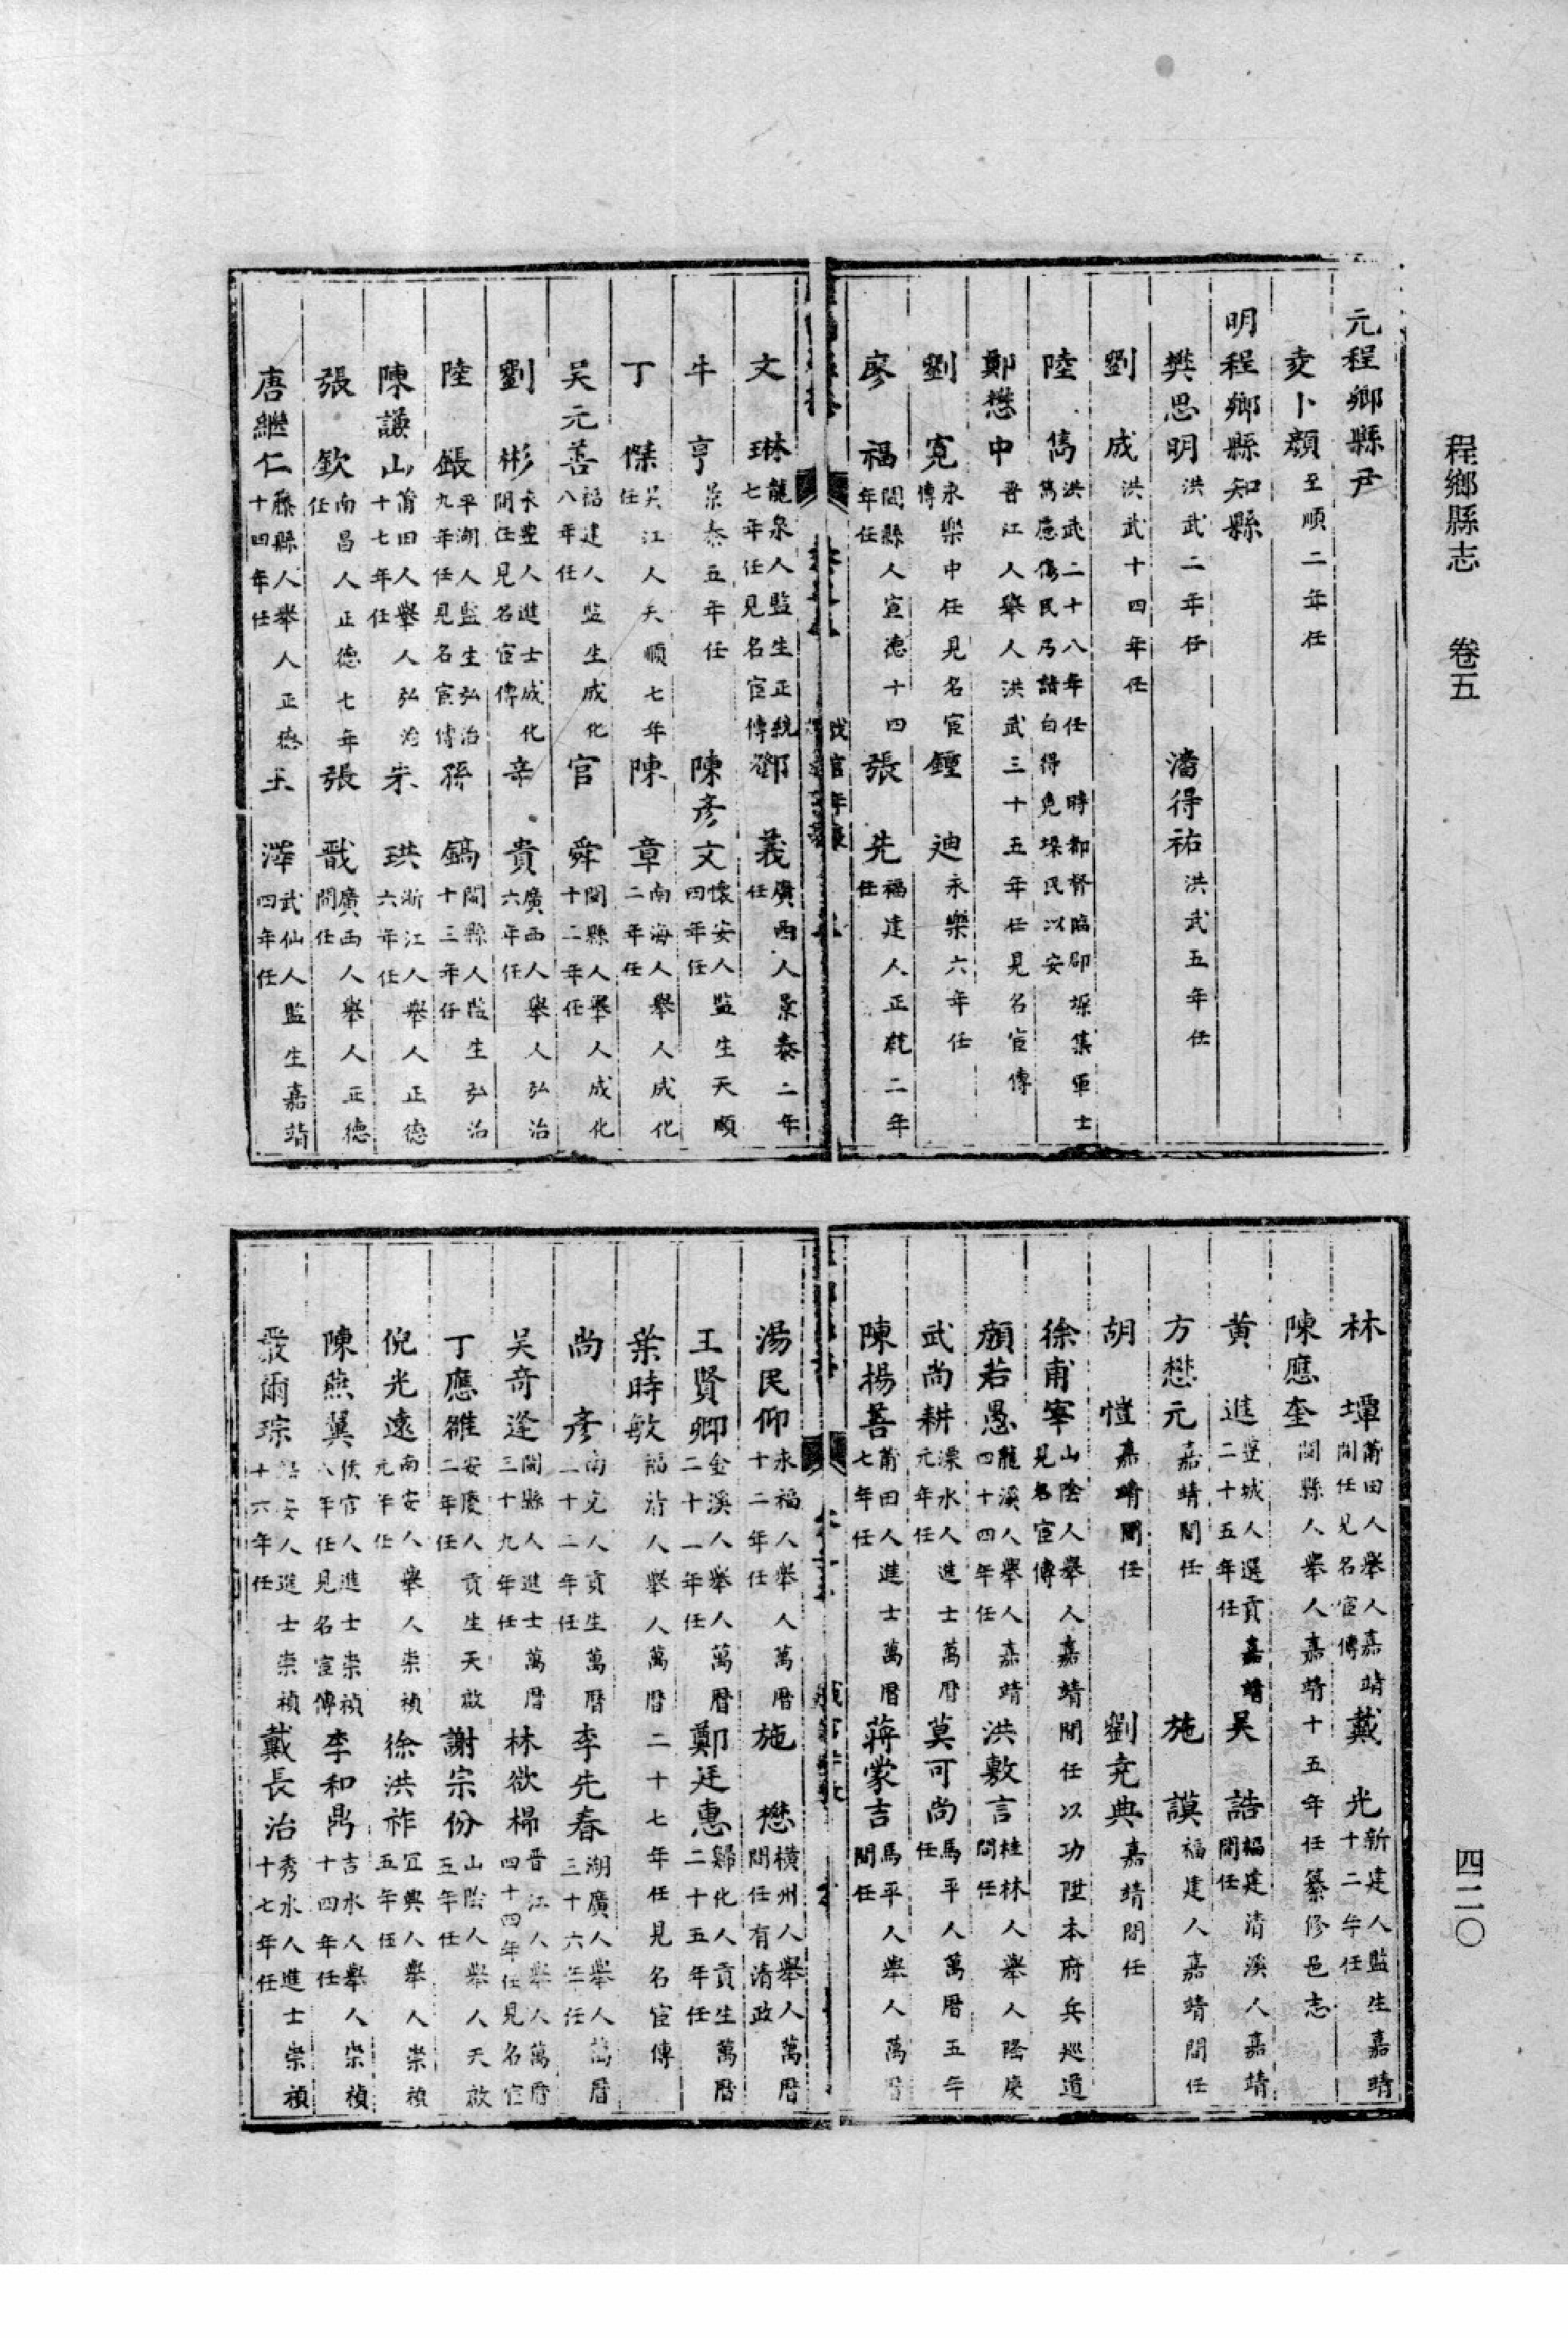 程鄉縣志 卷五
四二〇
元程鄉縣尹
卜顏 至順二年任
明程鄉縣知縣
樊思明 洪武二年任 潘得祐 洪武五年任
劉成 洪武十四年任
陸雋 洪武二十八年任時都督臨郡垛集軍士雋慮傷民乃請白得免垛民以安
鄭懋中 晉江人舉人洪武三十五年任見名宦傳
劉寬 永樂中任見名宦傳 鍾迪 永樂六年任
廖福 閩縣人宣德十四年任 張先 福建人正統二年任
文琳 龍泉人監生正統七年任見名宦傳 鄧義 廣西人景泰二年任
牛亨 景泰五年任 陳彥文 懷安人監生天順四年任
丁傑 吳江人天順七年任 陳章 南海人舉人成化二年任
吳元善 福建人監生成化八年任 官舜 閩縣人舉人成化十二年任
劉彬 永豐人進士成化間任見名宦傳 辛貴 廣西人舉人弘治六年任
陸鋹 平湖人監生弘治九年任見名宦傳 孫鎬 閩縣人監生弘治十三年任
陳謙山 莆田人舉人弘治十七年任 朱珙 浙江人舉人正德六年任
張欽 南昌人正德七年任 張戩 廣西人舉人正德間任
唐繼仁 藤縣人舉人正德十四年任 王澤 武仙人監生嘉靖四年任
林墰 莆田人舉人嘉靖間任見名宦傳 戴光 新建人監生嘉靖十二年任
陳應奎 閩縣人舉人嘉靖十五年任纂修邑志
黃進 豐城人選貢嘉靖二十五年任 吳誥 福建清溪人嘉靖間任
方懋元 嘉靖間任 施謨 福建人嘉靖間任
胡愷 嘉靖間任 劉堯典 嘉靖間任
徐甫宰 山陰人舉人嘉靖間任以功陞本府兵巡道見名宦傳
顏若愚 龍溪人舉人嘉靖四十四年任 洪敷言 桂林人舉人隆慶間任
武尚耕 溧水人進士萬曆元年任 莫可尚 馬平人萬曆五年任
陳楊善 莆田人進士萬曆七年任 蔣蒙吉 馬平人舉人萬曆間任
湯民仰 永福人舉人萬曆十二年任 施懋 橫州人舉人萬曆間任有清政
王賢卿 金溪人舉人萬曆二十一年任 鄭廷惠 歸化人貢生萬曆二十五年任
葉時敏 福清人舉人萬曆二十七年任見名宦傳
尚彥 南充人貢生萬曆二十二年任 李先春 湖廣人舉人萬曆三十六年任
吳奇逢 閩縣人進士萬曆三十九年任 林欲楊 晉江人舉人萬曆四十四年任見名宦
丁應雒 安慶人貢生天啟二年任 謝宗份 山陰人舉人天啟五年任
倪光遠 南安人舉人崇禎元年任 徐洪祚 宜興人舉人崇禎五年任
陳燕翼 侯官人進士崇禎八年任見名宦傳 李和鼎 吉水人舉人崇禎十四年任
爾琮 安人進士崇禎十六年任 戴長治 秀水人進士崇禎十七年任